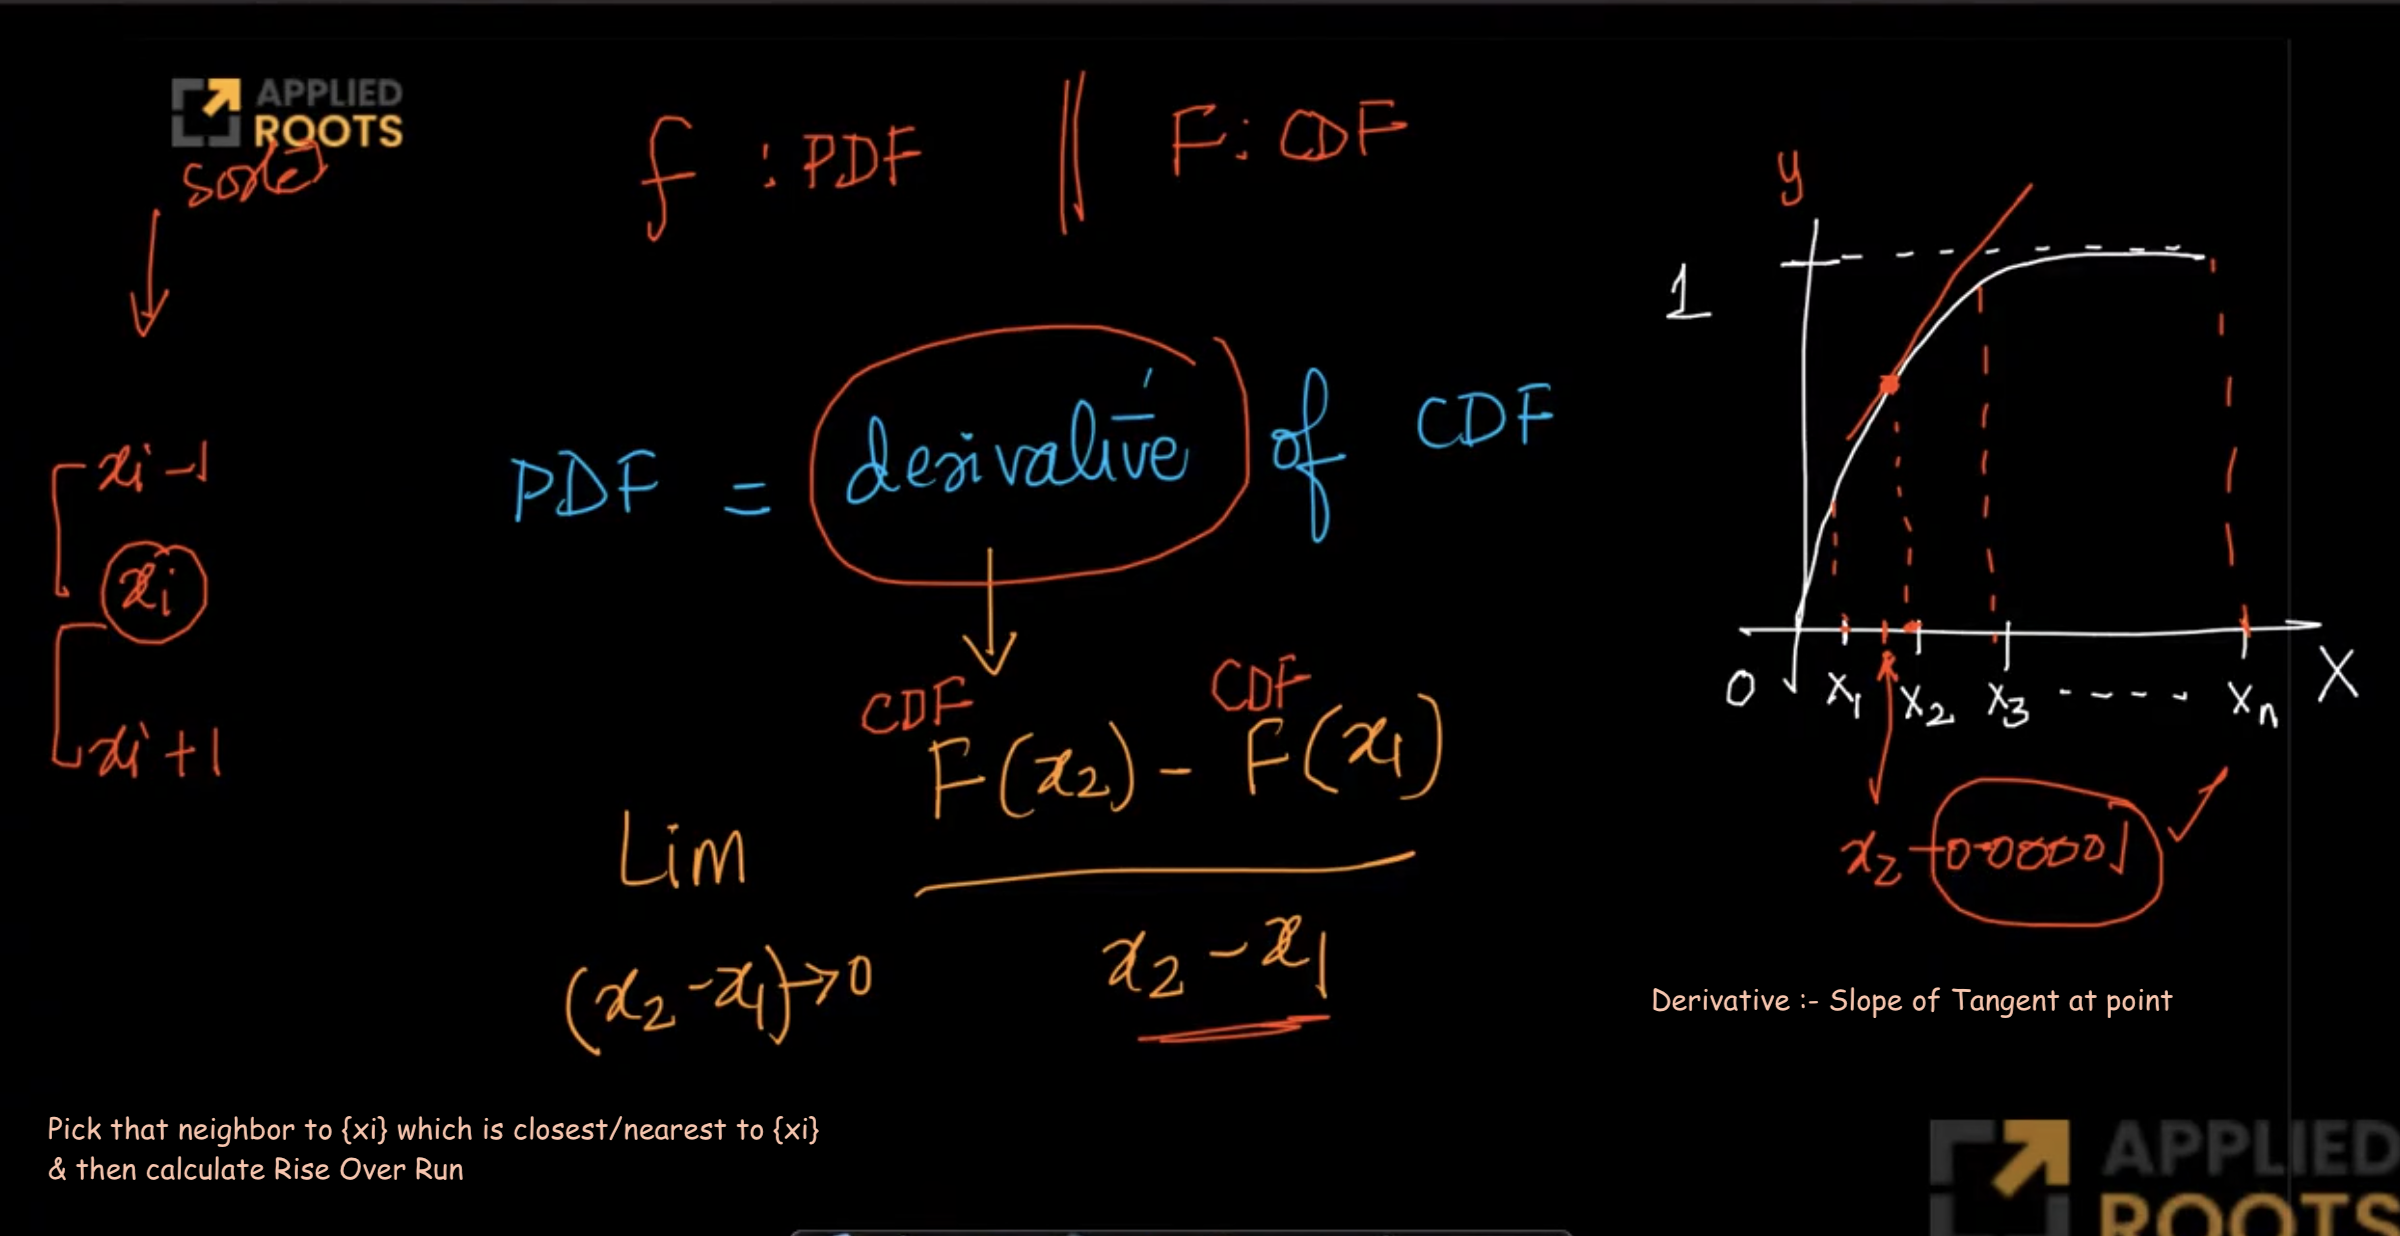 APPLIED
ROOTS
sorted
f : PDF || F: CDF
y
1
PDF = derivative of CDF
xi-1
xi
xi+1
0 x1 x2 x3 ---- xn X
CDF CDF
F(x2) - F(x1)
Lim
(x2-x1)→0
x2-x1
x2-0.00001 ✓
Derivative :- Slope of Tangent at point
Pick that neighbor to {xi} which is closest/nearest to {xi}
& then calculate Rise Over Run
APPLIED
ROOTS